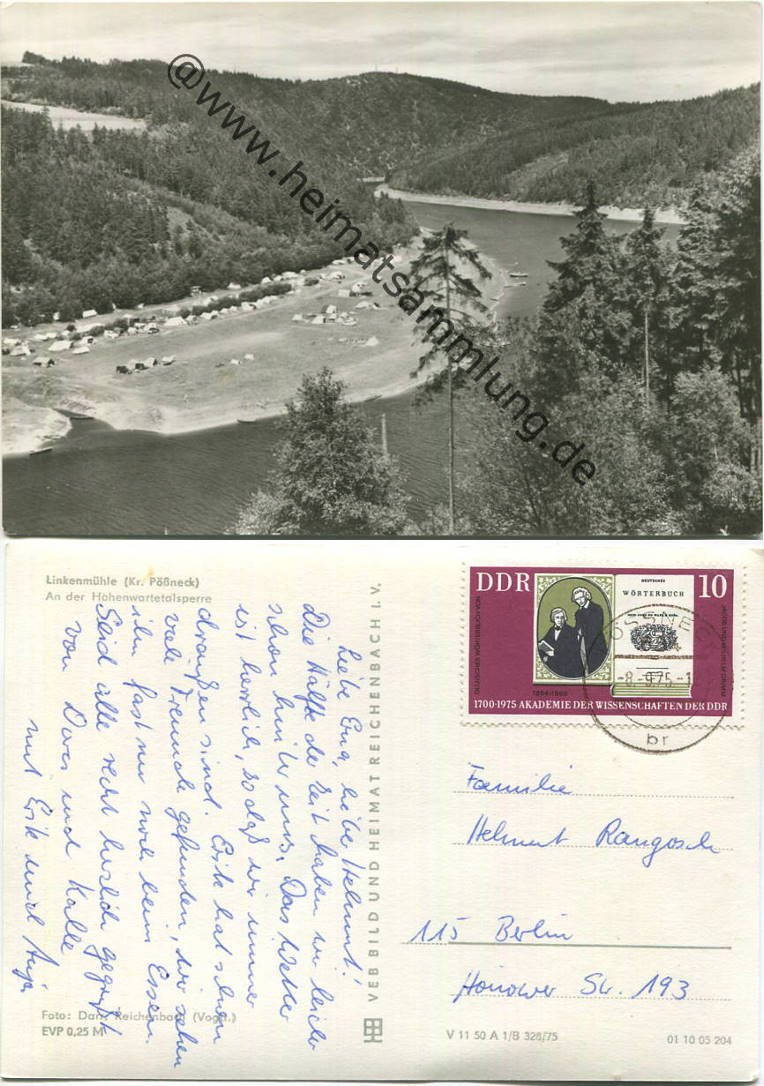 @www.heimatsammlung.de
Linkenmühle (Kr. Pößneck)
An der Hohenwartetalsperre
Liebe Eug, liebe Helmut!
Die Hälfte der Zeit haben wir leider
schon hinter uns. Das Wetter
ist herrlich, so daß wir immer
draußen sind. Erik hat schon
viele Freunde gefunden, wir sehen
ihn fast nur noch beim Essen.
Seid alle recht herzlich gegrüßt
von Doris und Kalle
mit Erik und Anja
Foto: Darr, Reichenbach (Vogtl.)
EVP 0,25 M
VEB BILD UND HEIMAT REICHENBACH I. V.
DDR
10
DEUTSCHES
WÖRTERBUCH
VON JACOB UND WILHELM GRIMM
DEUTSCHES WÖRTERBUCH VON
JACOB UND WILHELM GRIMM
1700-1975 AKADEMIE DER WISSENSCHAFTEN DER DDR
PÖSSNECK
-8.-9.75.-1
br
Familie
Helmut Rangosch
115 Berlin
Hönower Str. 193
V 11 50 A 1/B 328/75
01 10 05 204